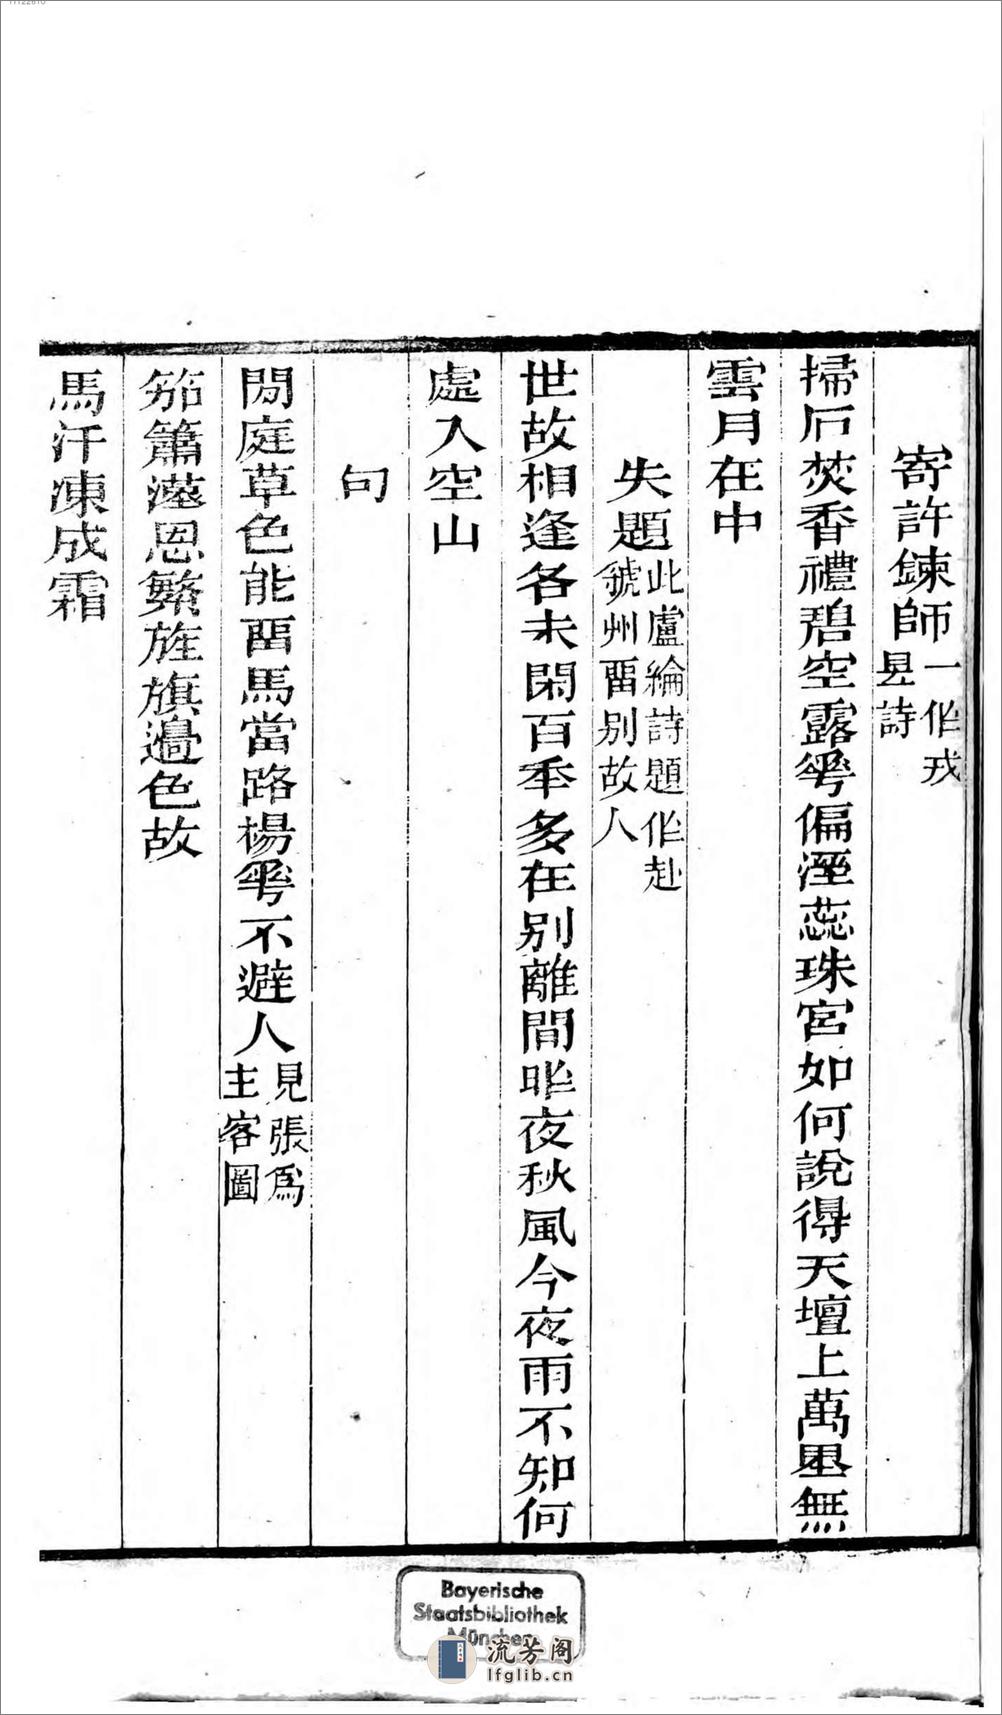 11122810
寄許鍊師一作戎
昱詩
掃石焚香禮碧空露蕐偏溼蕊珠宮如何說得天壇上萬里無
雲月在中
失題此盧綸詩題作赴
虢州畱别故人
世故相逢各未閑百年多在别離間昨夜秋風今夜雨不知何
處入空山
句
閒庭草色能畱馬當路楊蕐不避人見張爲
主客圖
笳簫
恩繁旌旗邉色故
馬汗凍成霜
Bayerische
Staatsbibliothek
München
流芳阁
lfglib.cn